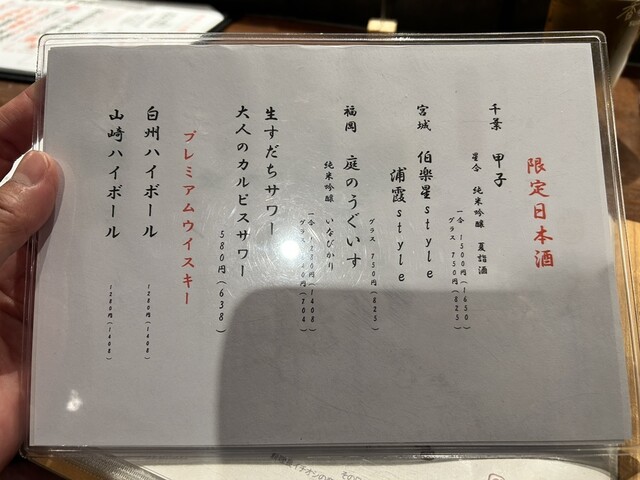 限定日本酒
千葉 甲子
星合 純米吟醸 夏詣酒
一合 1500円(1650)
グラス 750円(825)
宮城 伯楽星style
浦霞style
グラス 750円(825)
福岡 庭のうぐいす
純米吟醸 いなびかり
一合 1280円(1408)
グラス 640円(704)
生すだちサワー
大人のカルピスサワー
580円(638)
プレミアムウイスキー
白州ハイボール
1280円(1408)
山崎ハイボール
1280円(1408)